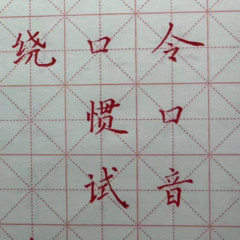 绕口令
惯口
试音